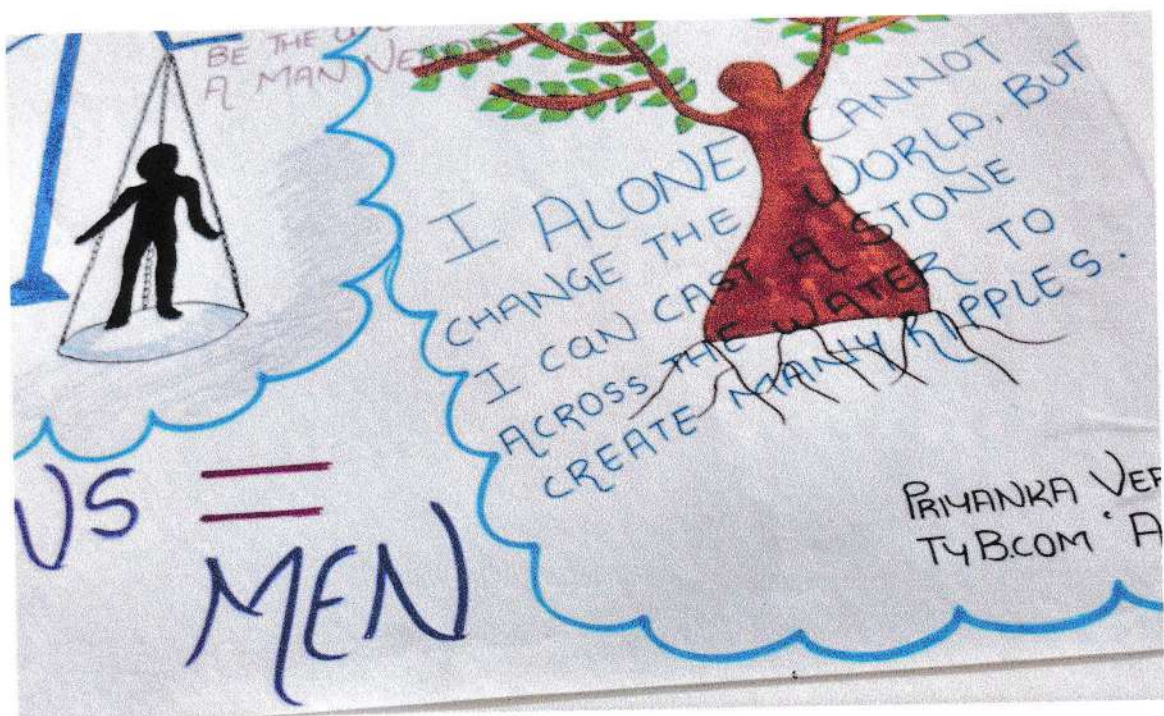 BE THE
A MAN NEEDS
I ALONE CANNOT
CHANGE THE WORLD, BUT
I CAN CAST A STONE
ACROSS THE WATER TO
CREATE MANY RIPPLES.
US =
MEN
PRIYANKA VER
TYB.COM 'A